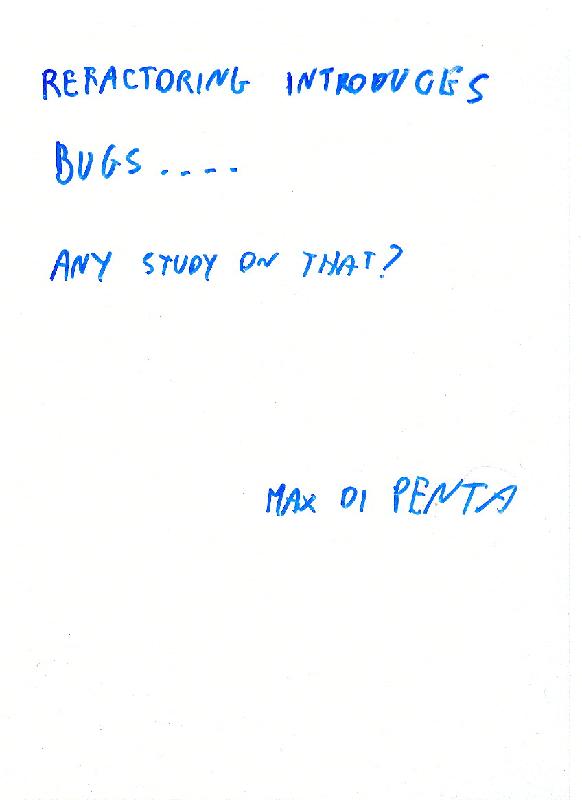 REFACTORING INTRODUCES
BUGS....
ANY STUDY ON THAT?
MAX DI PENTA